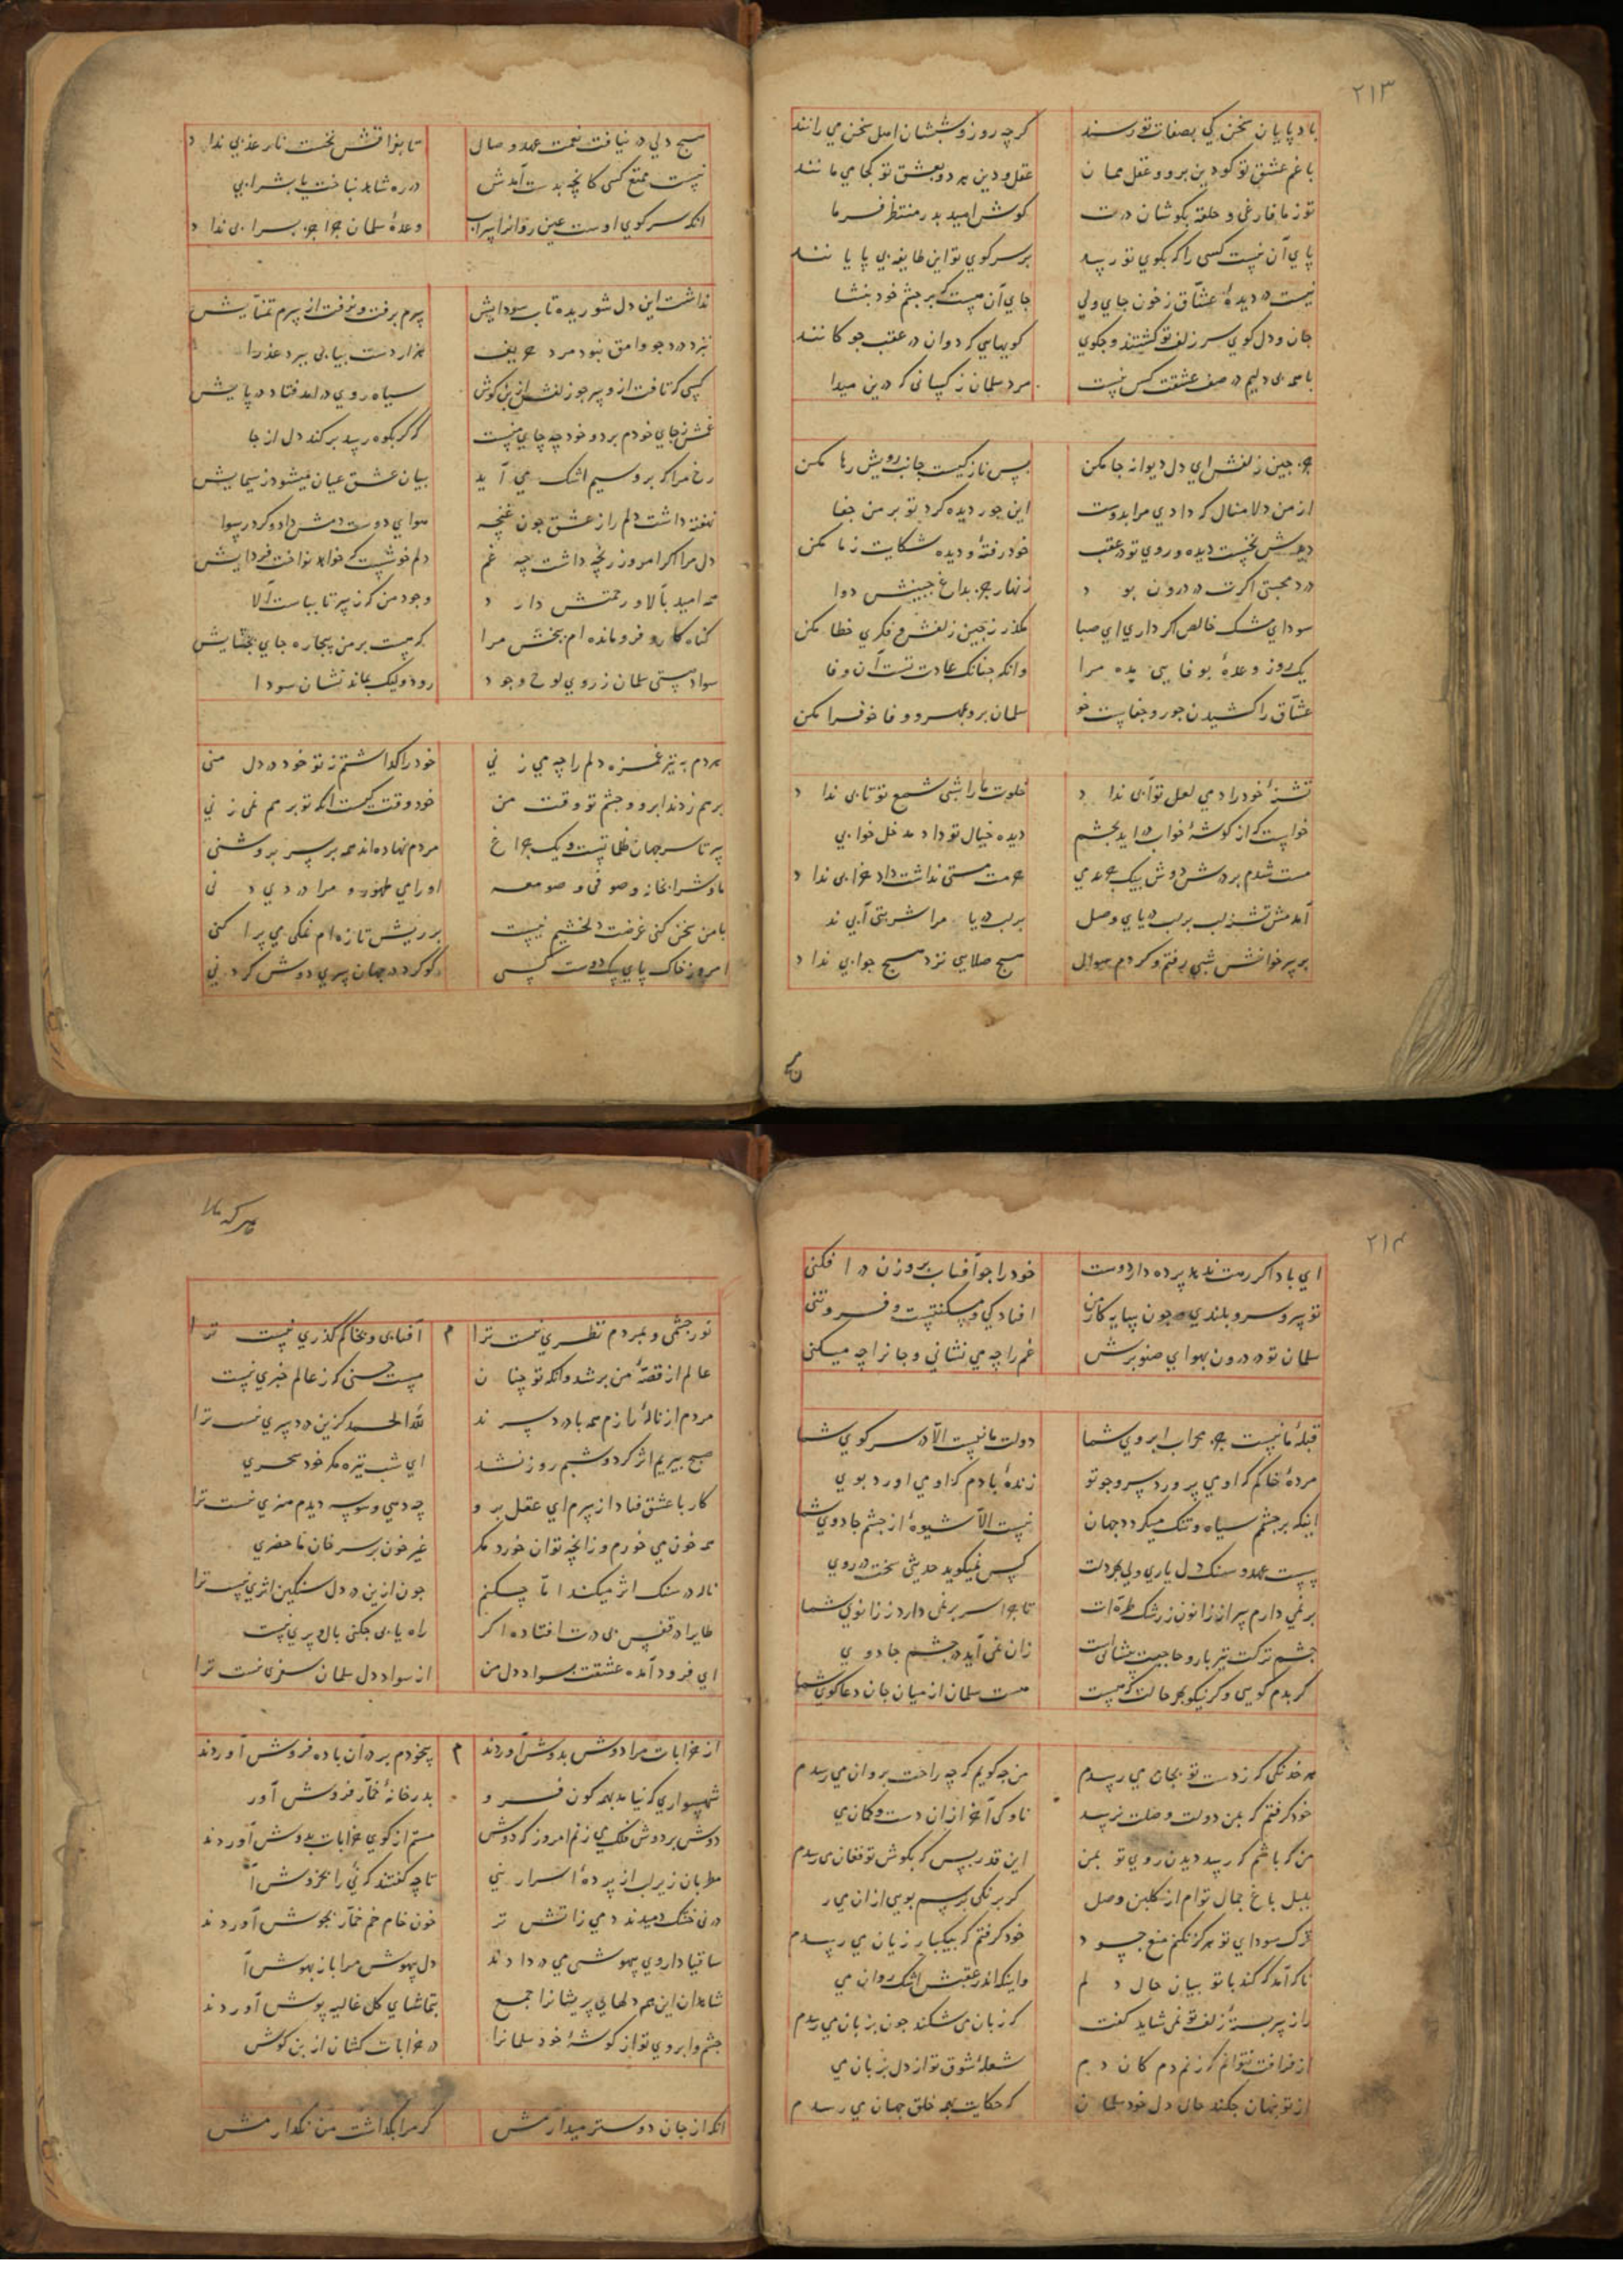 ۲۱۳
باد پایان سخن کی بصفات تو رسند گرچه روز و شبشان اهل سخن می رانند
با غم عشق تو کو دین برو و عقل ممان عقل و دین هر دو بعشق تو کجا می مانند
تو ز ما فارغی و حلقه بکوشان درت کوش امید بدر منتظر فرما
پای آن نیست کسی را که بکوی تو رسد بر سر کوی تو این طایفه بی پایانند
نیست در دیدهٔ عشاق ز خون جای ولی جای آن هست که بر چشم خودت بنشا
جان و دل کوی سر زلف تو کشتند و چکوی کویهایی که دوان در عقب چوکانند
با همه بی دلیم در صف عشقت کس نیست مرد سلمان ز کسانی که درین میدا
جز چین زلفش ای دل دیوانه جا مکن پس نازکست جانب رویش رها مکن
از من دلا منال که دادی مرا بدوست این جور دیده کرد تو بر من جفا
دیدش نخست دیده و روی تو در عقب خود رفتهٔ و دیده شکایت ز ما مکن
درد محبتی اکرت در درون بود زنهار جز بداغ حبیبش دوا
سودای مشک خالص اکر داری ای صبا مگذر ز چین زلفش و فکری خطا مکن
یک روز وعدهٔ بوفایی بده مرا وانکه چنانک عادت تست آن وفا
عشاق را کشیدن جور و جفاست خو سلمان برو بمهر و وفا خو فرا مکن
تشنهٔ خود را دمی لعل تو آبی نداد خلوت ما را شبی شمع تو تابی نداد
خواست که از کوشهٔ خواب در اید بچشم دیده خیال تو داد مدخل خوابی
مست شدم بر درش دوش بیک جرعه می حرمت مستی نداشت داد خرابی نداد
آمدمش تشنه لب بر لب دریای وصل بر لب دریا مرا شربتی آبی ند
بر سر خوانش شبی رفتم و کردم سوال هیچ صلایی نزد هیچ جوابی نداد
هیچ
هیچ دلی در نیافت نعمت عهد وصال تا بفراقش نخست نار عذابی نداد
نیست ممتع کسی کانچه بدست آمدش در ره شاهد نباخت یا بشرابی
انکه سر کوی اوست عین روانرا سراب وعدهٔ سلمان چرا جز بسرابی نداد
نداشت این دل شوریده تاب سودایش سرم برفت و نرفت از سرم تمنایش
نبرد درد چو وامق نبود مرد حریف هزار دست بیابی ببرد عذرا
کسی که تافت ازو سر چو زلفش از بن کوش سیاه روی در امد فتاد در پایش
غمش ز جای خودم برد و خود چه جای منست که کر بکوه رسد برکند دل از جا
رخ مرا که برو سیم اشک می آید بیان عشق عیان میشود ز سیمایش
نهفته داشت دلم راز عشق چون غنچه هوای دوست دمش داد و کرد رسوا
دل مرا اکر امروز رنجه داشت چه غم دلم خوشست که خواهد نواخت فردایش
همه امید بآلا و رحمتش دارد وجود من که ز سر تا بپاست آلا
کناه کار و فرو مانده ام ببخش مرا که هست بر من بیچاره جای بخشایش
سواد هستی سلمان ز روی لوح وجود رود ولیک بماند نشان سودا
هردم به تیر غمزه دلم را چه می زنی خود را کذاشتم ز تو خود در دل منی
بر هم زدند ابرو و چشم تو وقت من خود وقت کیست انکه تو بر هم نمی زنی
سر تا سر جهان ظلماتست و یک چراغ مردم نهاده اند همه بر سر بروشنی
ما و شرابخانه و صوفی و صومعه او رای طهور و مرا دردی دنی
با من سخن کنی غرضت دلخشیم نیست بر ریش تازه ام نمکی می پراکنی
امروز خاک پای سک دوست هر کسی کو کرد در جهان سری دوش کردنی
۲۱۴
ای باد اکر رهت ندهد پرده دار دوست خود را چو آفتاب بروزن در افکنی
تو سرو سر بلندی و چون سایه کار من افتادکی و مسکنتیست و فروتنی
سلمان تو در درون بهوای صنوبرش غم را چه می نشانی و جانرا چه میکنی
قبلهٔ ما نیست جز محراب ابروی شما دولت ما نیست الا در سر کوی شما
مردهٔ خاکم که او می پرورد سرو چو تو زندهٔ بادم که او می اورد بوی
اینکه بر چشمم سیاه و تنک میکردد جهان نیست الا شیوهٔ از چشم جادوی شما
سست عهد و سنک دل یاری ولی بهر دلت کس نمیکوید حدیثی سخت در روی
بر نمی دارم سر از زانو ز رشک طرهٔ ات تا چرا سر بر نمی دارد ز زانوی شما
چشم ترکت تیر بار و حاجبت پیشانیست زان نمی آید در چشم جادوی
کر بدم کویی و کر نیکو بهر حالت که هست هست سلمان از میان جان دعا کوی شما
هر خدنکی که ز دست تو بجان می رسدم من چه کویم که چه راحت بروان می رسدم
خود کرفتم که بمن دولت وصلت نرسد ناوکی آخر ازان دست و کمان می
من که باشم که رسد دیدن روی تو بمن این قدر بس که بکوش تو فغان می رسدم
بلبل باغ جمال تو ام از کلبن وصل کر برنکی نرسم بویی ازان می ر
ترک سودای تو هرکز نکنم منع چه سود خود کرفتم که بیکبار زیان می رسدم
ناله آمد که کند با تو بیان حال دلم واینک اندر عقبش اشک روان می
راز سر بستهٔ زلف تو نمی شاید کفت که زبان می شکند چون بزبان می رسدم
از فراقت نتوانم که زنم دم کان دم شعلهٔ شوق تو از دل بزبان می
از تو پنهان چکند حال دل خود سلمان که حکایت بهمه خلق جهان می رسدم
نور چشمی و بمردم نظری نیست ترا م آفتابی و بخاکم کذری نیست ترا
عالم از قصهٔ من پر شد وانکه تو چنان مست حسنی که ز عالم خبری نیست
مردم از نالهٔ زارم همه با درد سرند لله الحمد کزین درد سری نیست ترا
صبح پیریم اثر کرد و شبم روز نشد ای شب تیره مکر خود سحری
کار با عشق فتاد از سرم ای عقل برو چه دهی وسوسه دیدم هنری نیست ترا
همه خون می خورم و زانچه توان خورد مکر غیر خون بر سر خوان ما حضری
ناله در سنک اثر میکند اما چکنم چون ازین در دل سنکین اثری نیست ترا
طایرا در قفس بی درت افتاده اکر راه یابی چکنی بال و پری نیست
ای فرود آمده عشقت بسواد دل من از سواد دل سلمان سفری نیست ترا
از خرابات مرا دوش بدوش آوردند م بیخودم بر در آن باده فروش آوردند
شهسواری که نیامد بهمه کون فرو بدر خانهٔ خمار فروش آور
دوش بر دوش فلک می زنم امروز که دوش مستم از کوی خرابات بدوش آوردند
مطربان زیر لب از پردهٔ اسرار نیی تا چه کفتند که نی را بخروش آ
در نی خشک دمیدند دمی ز آتش تر خون خام خم خمار بجوش آوردند
ساقیا داروی بیهوشی می در دادند دل بیهوش مرا باز بهوش آ
شاهدان این همه دلهای پریشانرا جمع بتماشای کل غالیه پوش آوردند
چشم و ابروی تو از کوشهٔ خود سلمانرا در خرابات کشان از بن کوش
انکه از جان دوستر میدارمش کر مرا بکذاشت من نکذارمش